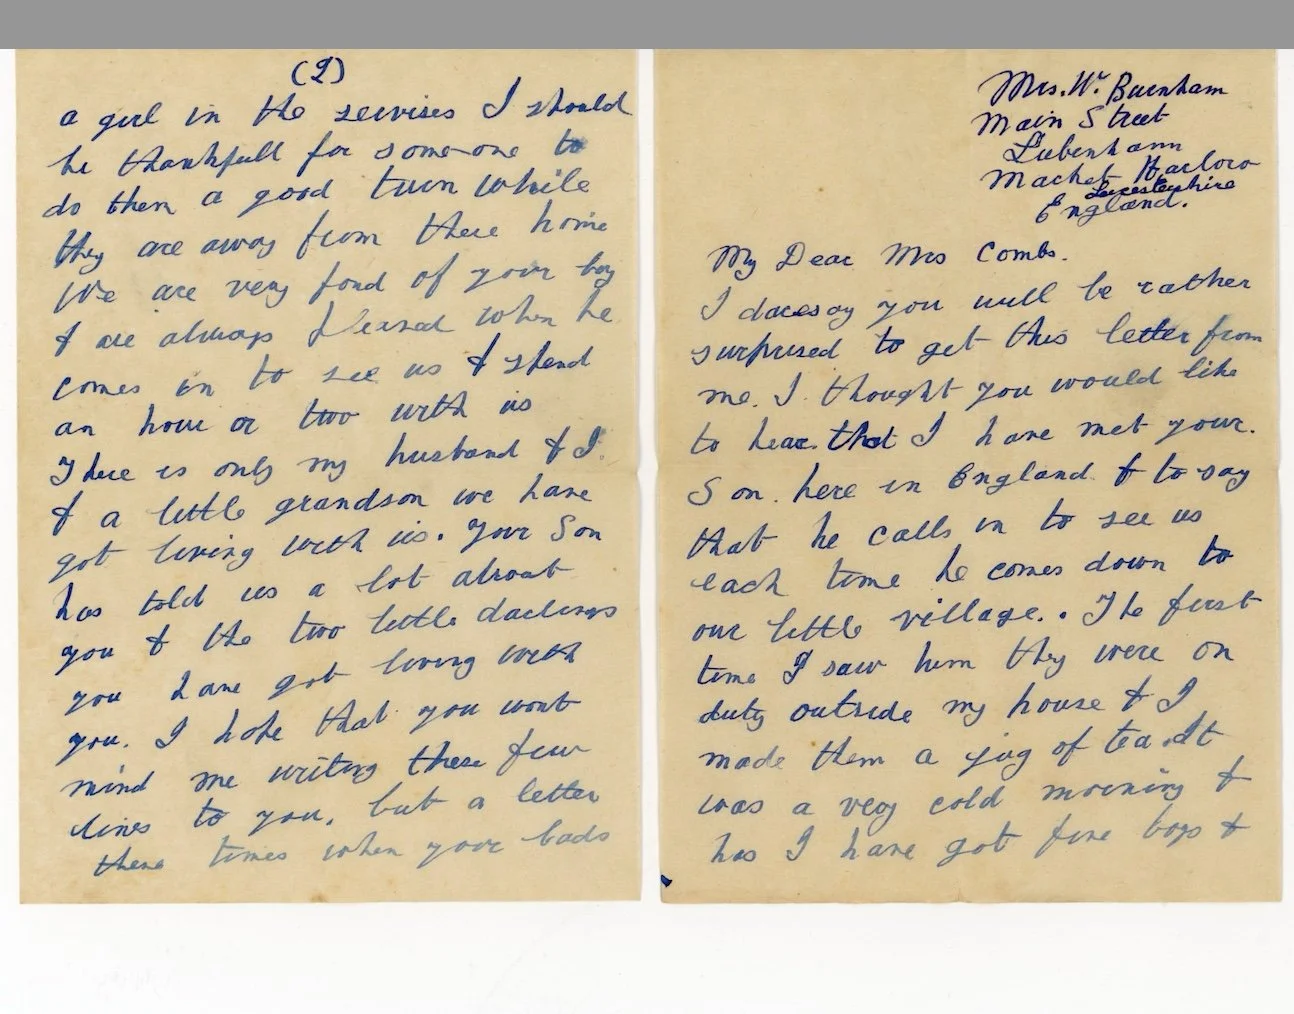 Mrs. W. Burnham
Main Street
Lubenhann
Machet Harboro
Leicestershire
England.
My Dear Mrs Combs.
I daresay you will be rather
surprised to get this letter from
me. I thought you would like
to hear that I have met your.
Son. here in England & to say
that he calls in to see us
each time he comes down to
our little village.. The first
time I saw him they were on
duty outside my house & I
made them a jug of tea. It
was a very cold morning &
has I have got five boys &
(2)
a girl in the servises I should
be thankfull for some-one to
do them a good turn while
they are away from there home
We are very fond of your boy
& are always pleased when he
comes in to see us & spend
an hour or two with us
There is only my husband & I.
& a little grandson we have
got living with us. Your Son
has told us a lot about
you & the two little darlings
you have got living with
you. I hope that you wont
mind me writing these few
lines to you, but a letter
these times when your lads